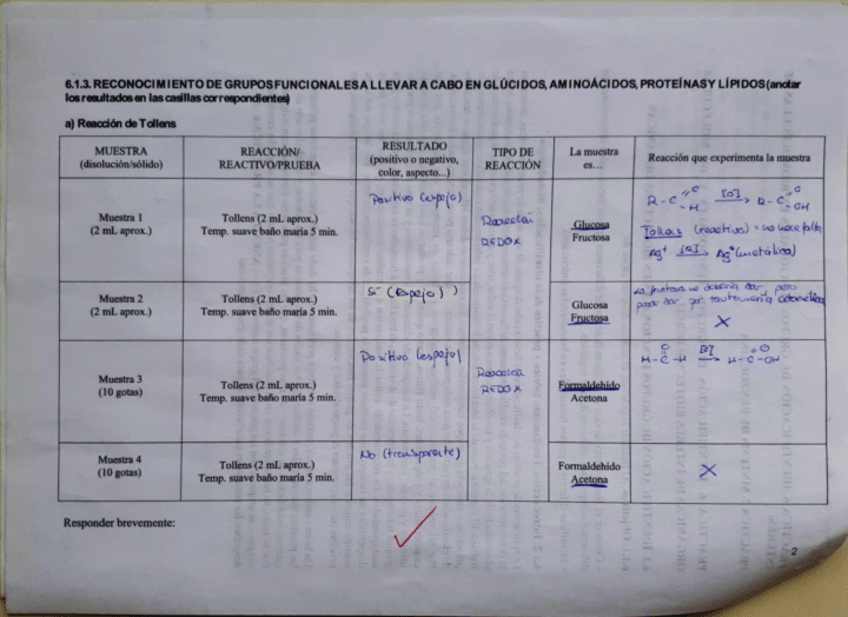 6.1.3. RECONOCIMIENTO DE GRUPOS FUNCIONALES A LLEVAR A CABO EN GLÚCIDOS, AMINOÁCIDOS, PROTEÍNAS Y LÍPIDOS (anotar
los resultados en las casillas correspondientes)
a) Reacción de Tollens
MUESTRA
(disolución/sólido)
REACCIÓN/
REACTIVO/PRUEBA
RESULTADO
(positivo o negativo,
color, aspecto...)
TIPO DE
REACCIÓN
La muestra
es…
Reacción que experimenta la muestra
Muestra 1
(2 mL aprox.)
Tollens (2 mL aprox.)
Temp. suave baño maría 5 min.
Positivo (espejo)
Reacción
REDOX
Glucosa
Fructosa
R-C=O-H [O] → R-C=O-OH
Tollens (reactivo) = no hace falta
Ag⁺ [R] → Ag⁰ (metálica)
Muestra 2
(2 mL aprox.)
Tollens (2 mL aprox.)
Temp. suave baño maría 5 min.
Sí (espejo)
Glucosa
Fructosa
La fructosa no debería dar, pero
puede dar por tautomería cetoenólica
X
Muestra 3
(10 gotas)
Tollens (2 mL aprox.)
Temp. suave baño maría 5 min.
Positivo (espejo)
Reacción
REDOX
Formaldehido
Acetona
H-C=O-H [O] → H-C=O-OH
Muestra 4
(10 gotas)
Tollens (2 mL aprox.)
Temp. suave baño maría 5 min.
No (transparente)
Formaldehido
Acetona
X
Responder brevemente:
2